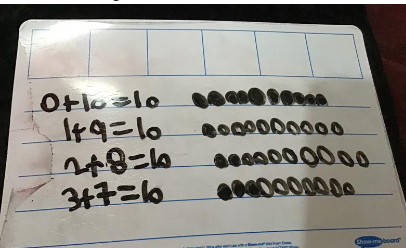 0+10=10
1+9=10
2+8=10
3+7=10
Show-me board